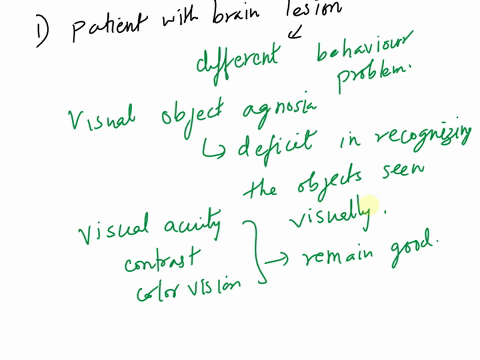 1) Patient with brain lesion
different behaviour
problem.
Visual object agnosia
↳ deficit in recognizing
the objects seen
visually.
Visual acuity
contrast
color vision
→ remain good.